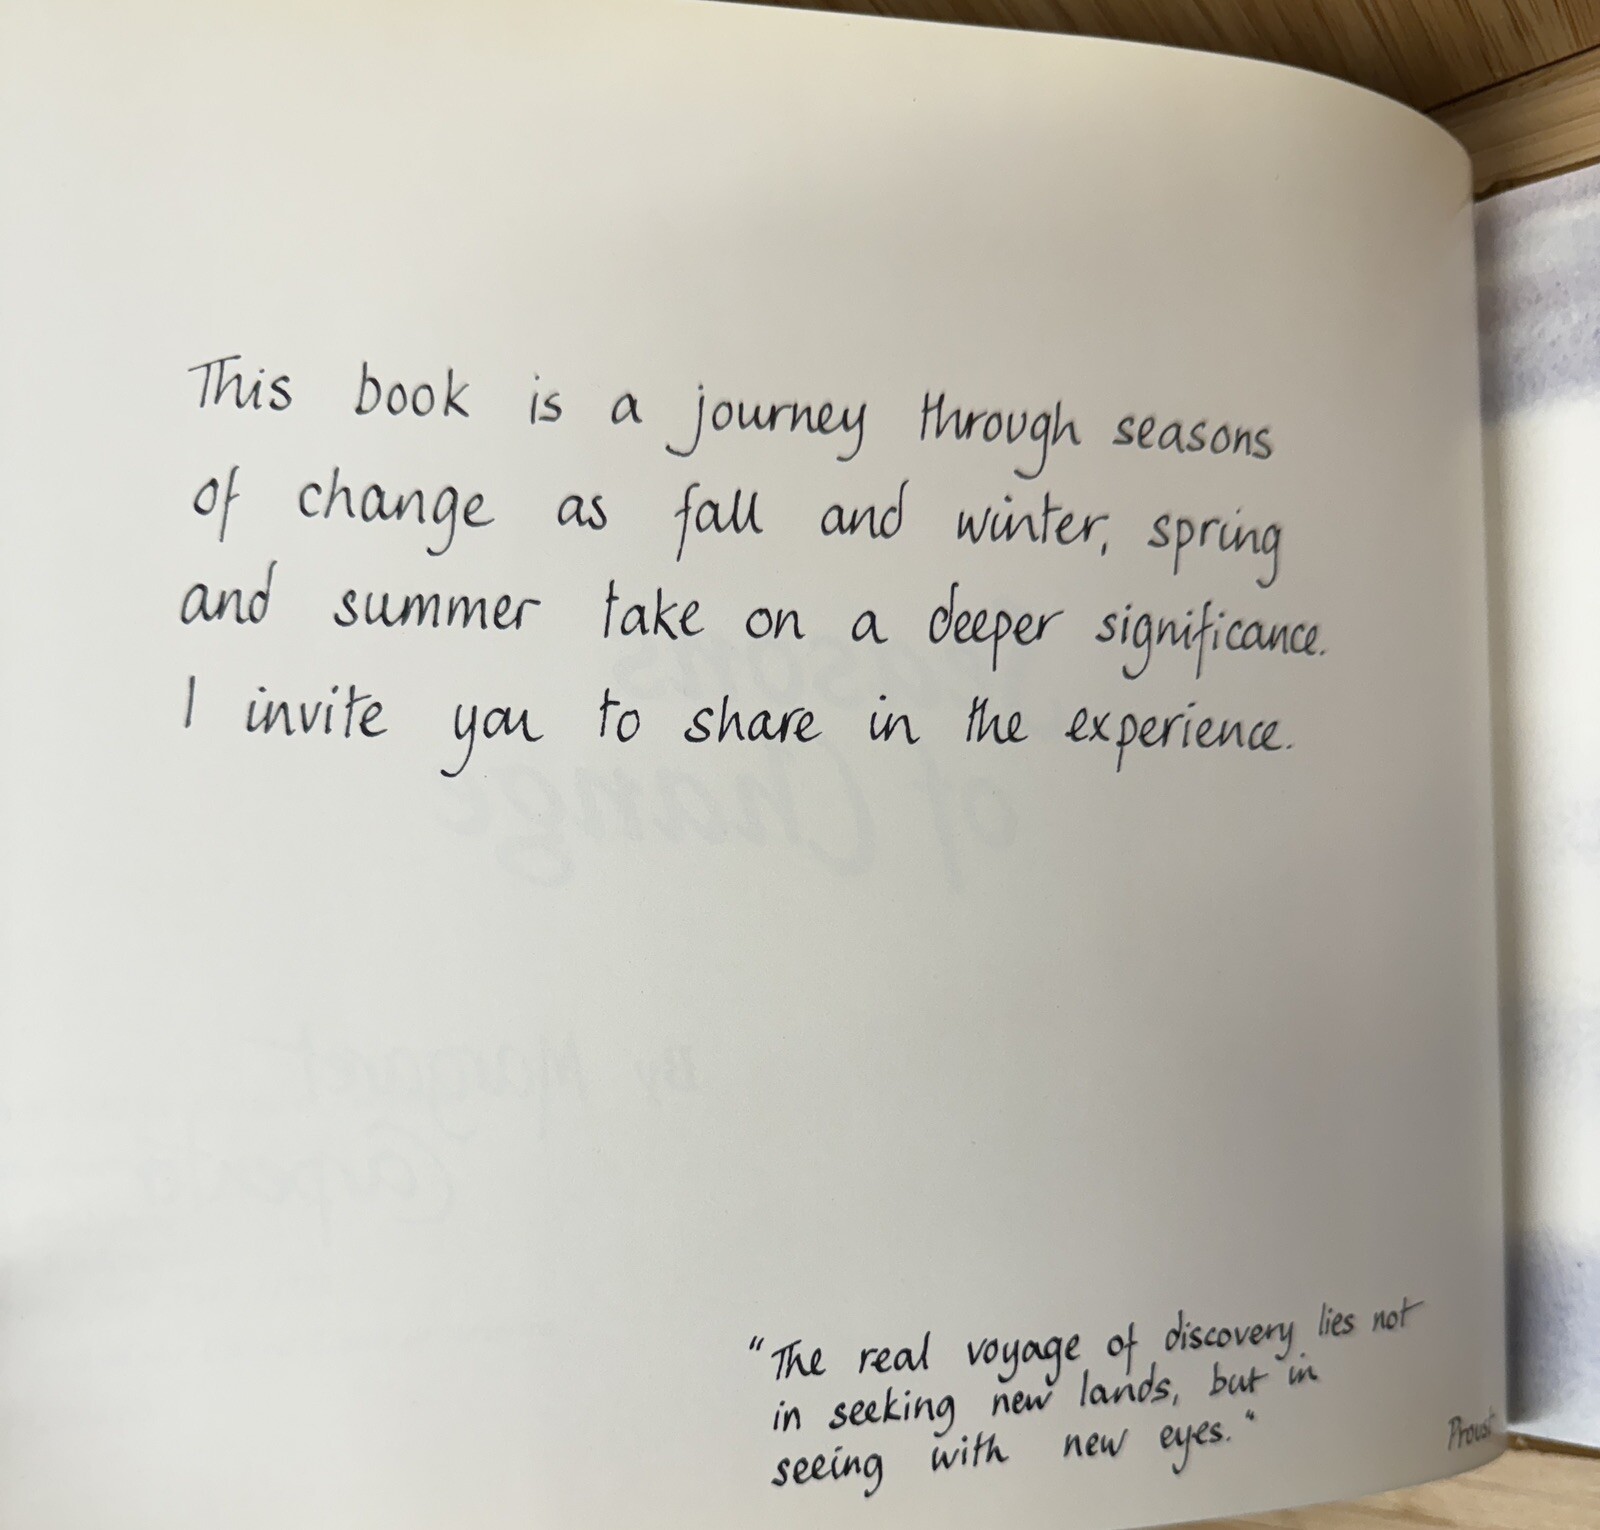 This book is a journey through seasons
of change as fall and winter, spring
and summer take on a deeper significance.
I invite you to share in the experience.
"The real voyage of discovery lies not
in seeking new lands, but in
seeing with new eyes."
Proust